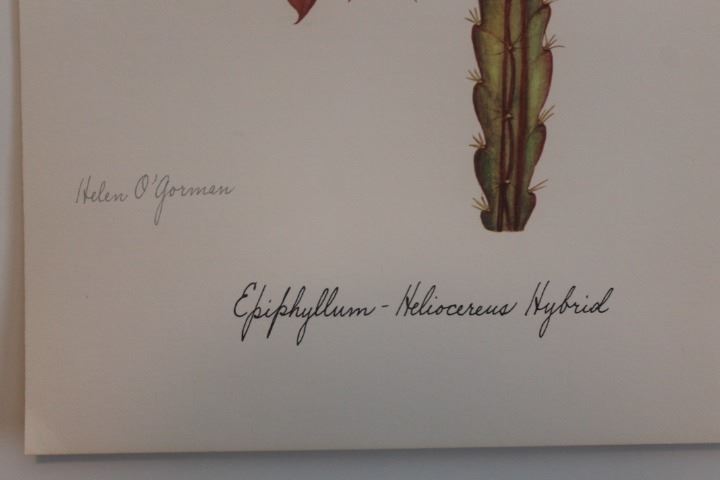 Helen O'Gorman
Epiphyllum - Heliocereus Hybrid